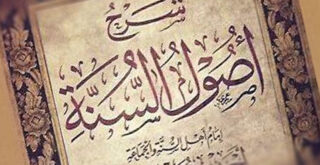 شرح
أصول السنة
إمام أهل السنة والجماعة